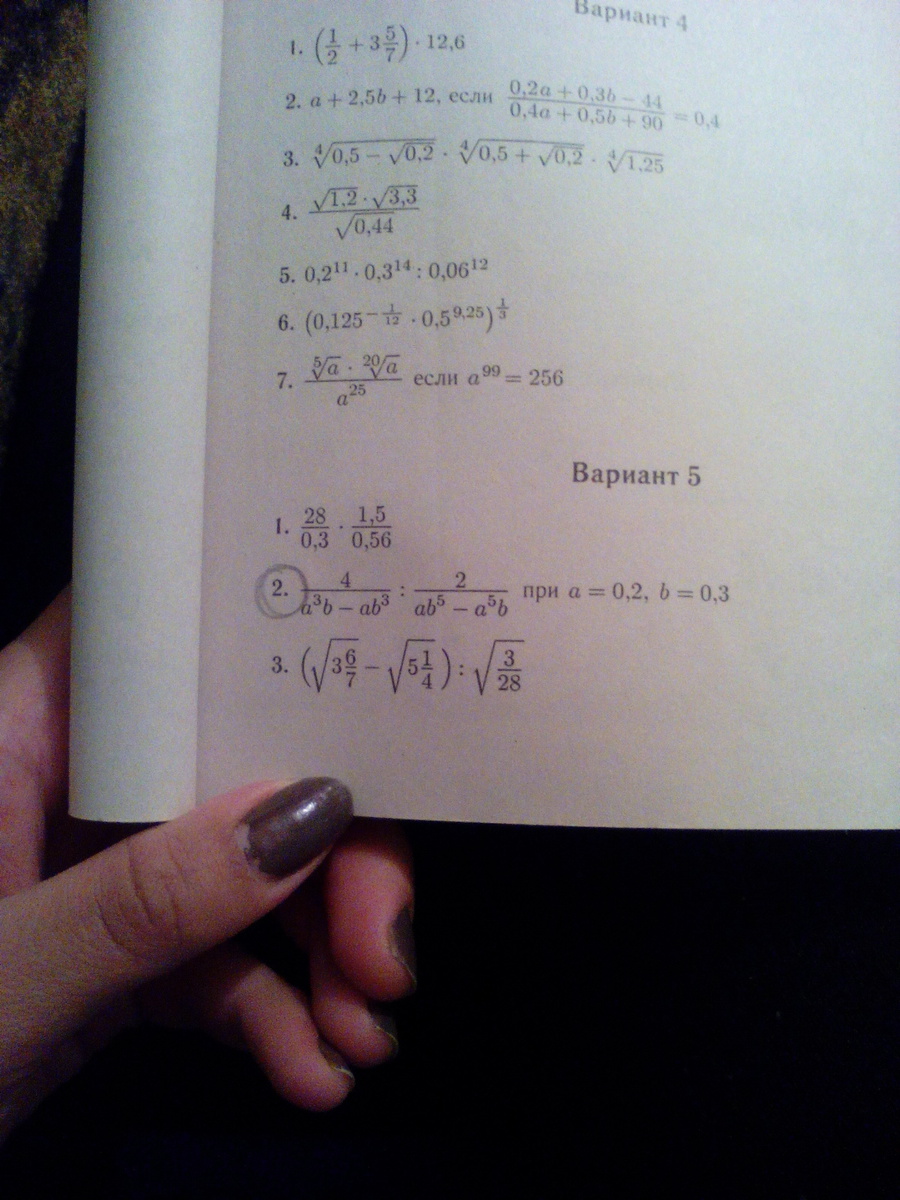 Вариант 4
1. (1/2 + 3 5/7) · 12,6
2. a + 2,5b + 12, если (0,2a + 0,3b − 44)/(0,4a + 0,5b + 90) = 0,4
3. ⁴√(0,5 − √0,2) · ⁴√(0,5 + √0,2) · ⁴√1,25
4. (√1,2 · √3,3)/√0,44
5. 0,2¹¹ · 0,3¹⁴ : 0,06¹²
6. (0,125^(−1/12) · 0,5^(9,25))^(1/3)
7. (⁵√a · ²⁰√a)/a²⁵ если a⁹⁹ = 256
Вариант 5
1. 28/0,3 · 1,5/0,56
2. 4/(a³b − ab³) : 2/(ab⁵ − a⁵b) при a = 0,2, b = 0,3
3. (√(3 6/7) − √(5 1/4)) : √(3/28)